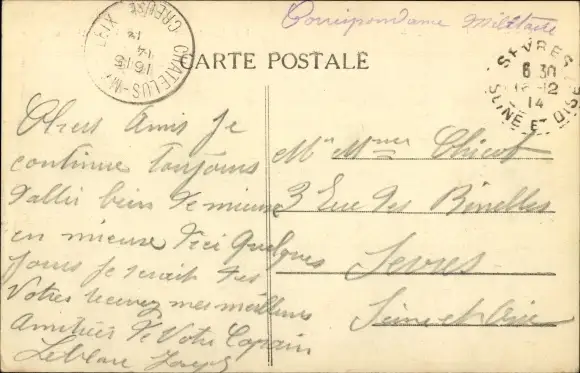 Correspondance Militaire
CARTE POSTALE
CHATELUS-M
CREUSE
16 15
14
12
SEVRES
6 30
16-12
14
SEINE ET OISE
Chers Amis je
continue toujours
d'aller bien de mieux
en mieux d'ici quelques
jours je serait des
Votres recevez mes meilleurs
Amitiées de Votre Copain
Leblanc Joseph
Mr Mme Chicot
3 Rue des Binelles
Sevres
Seine et Oise